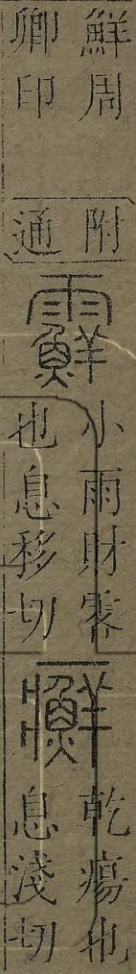 鮮周
卿印
附
通
䨘
小雨財零
也息移切
癬
乾瘍也
息淺切